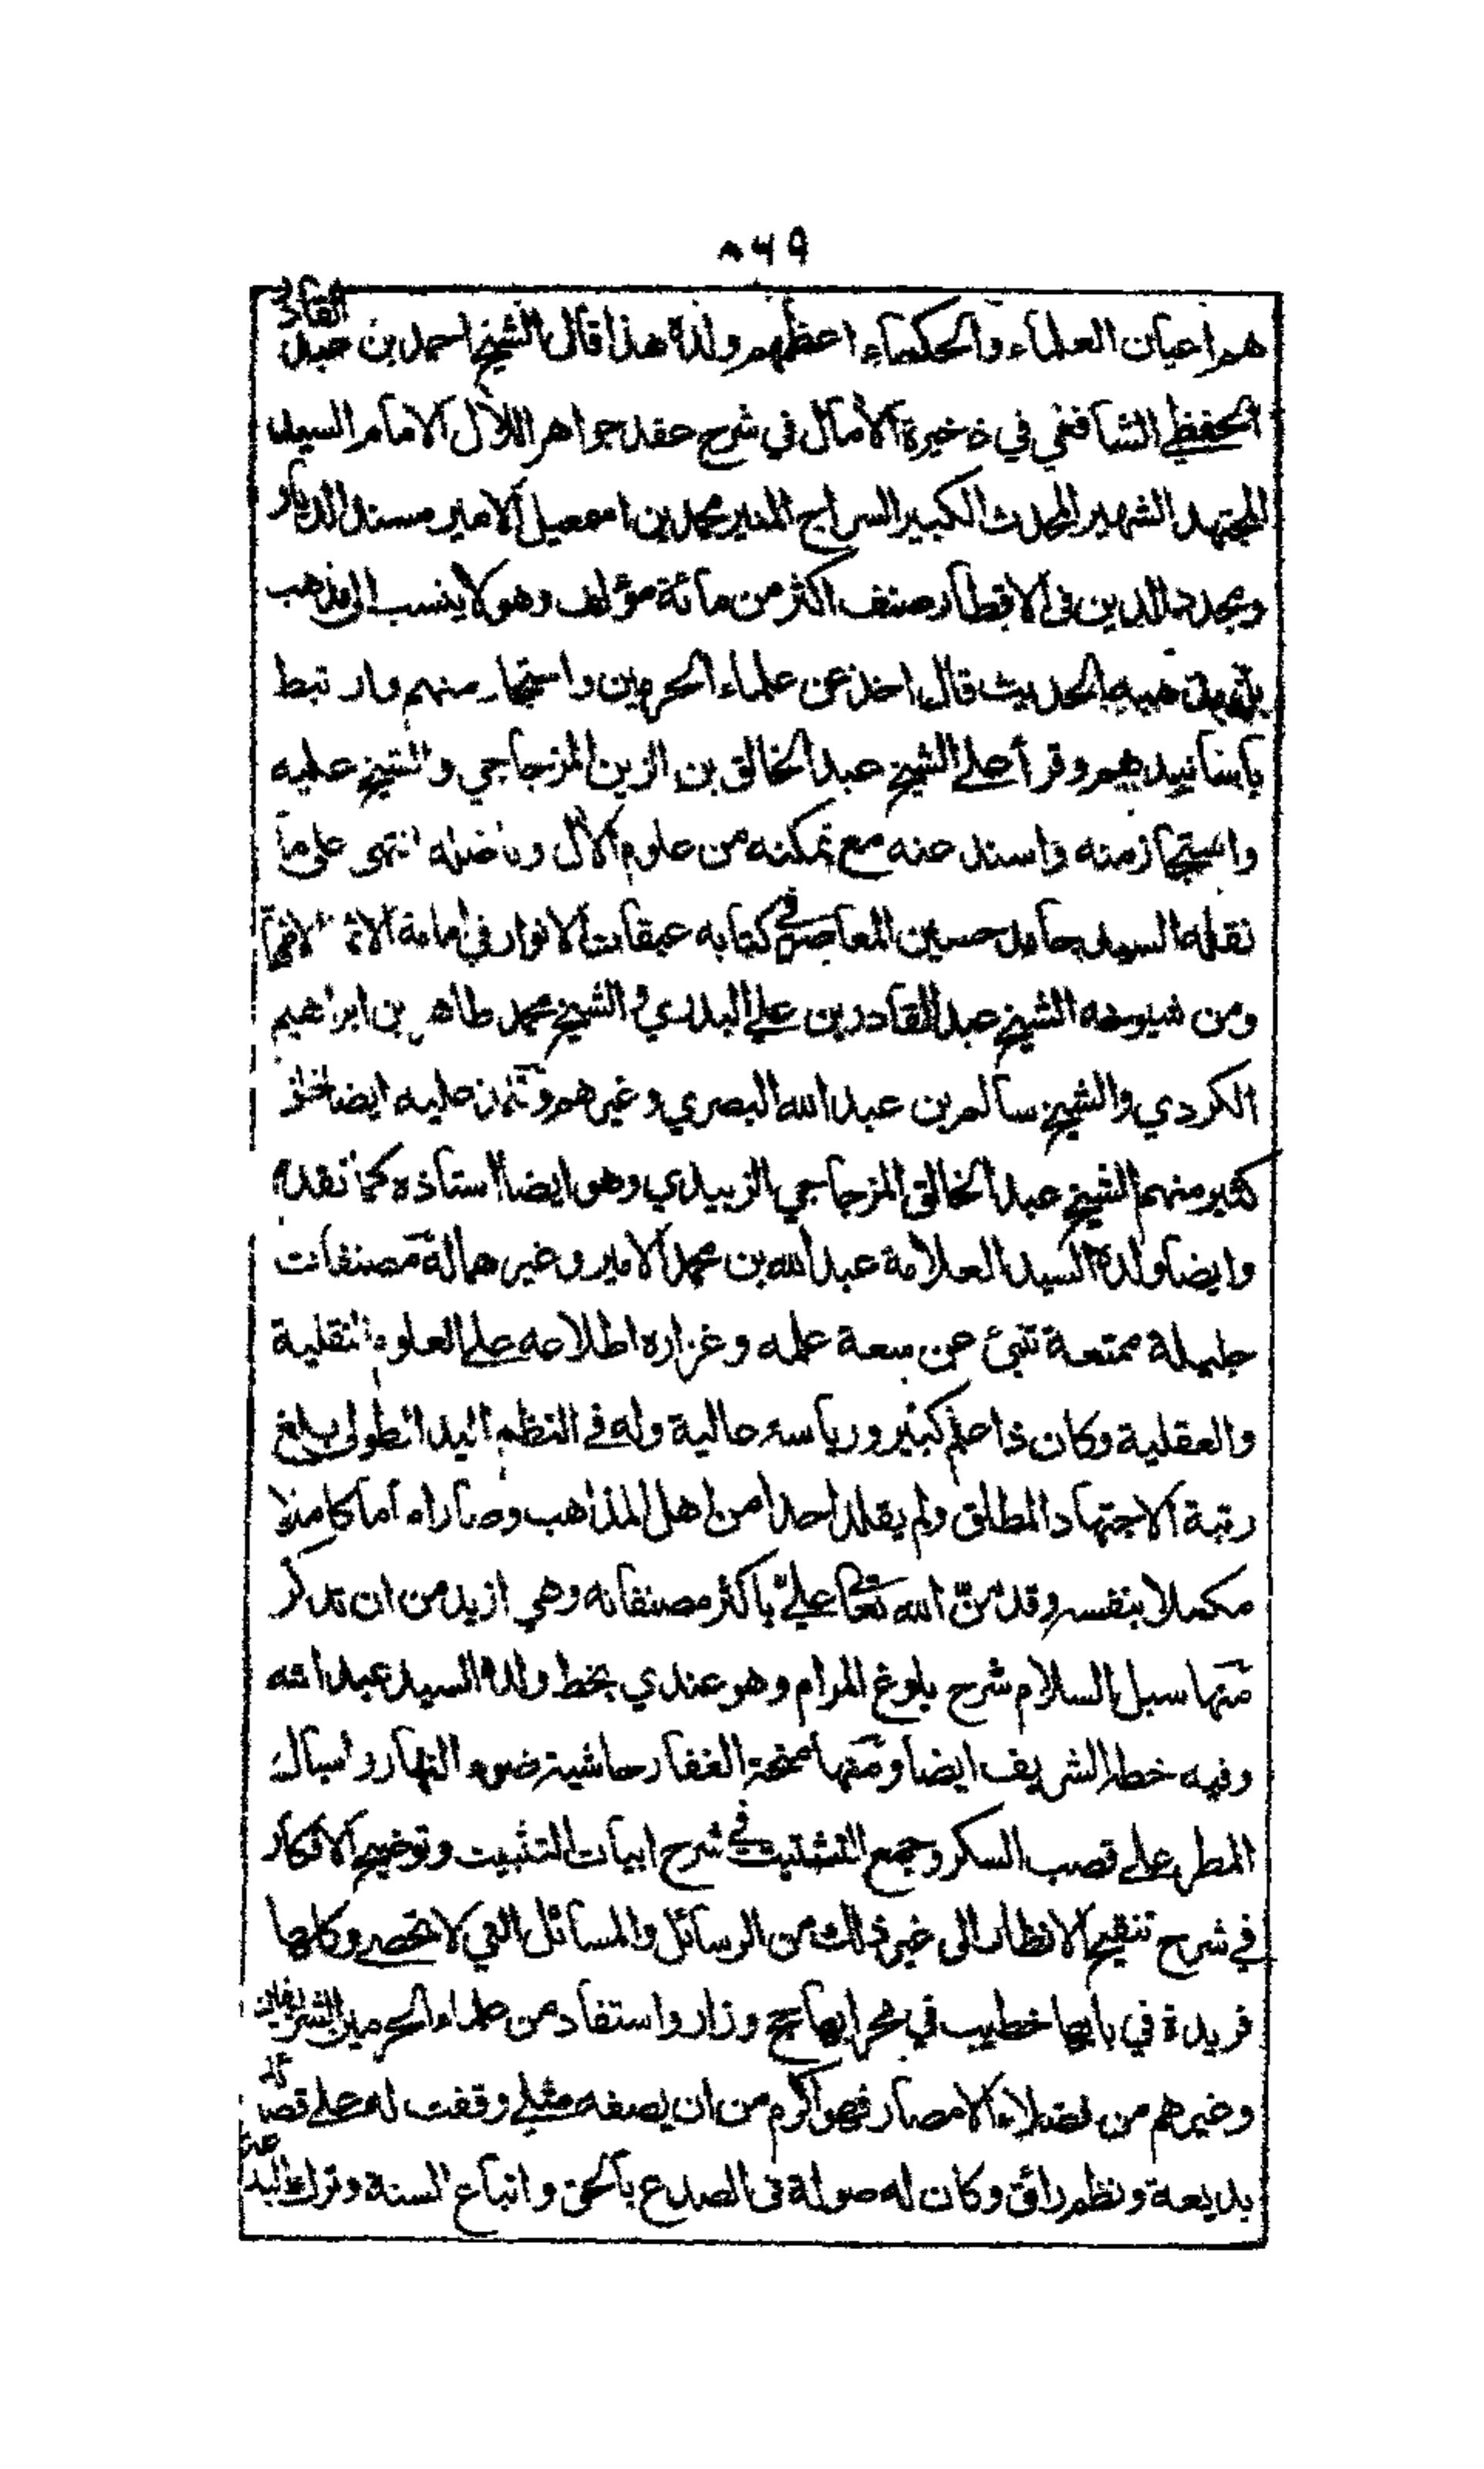 ٨٦٩
هم اعيان العلماء والحكماء اعظهم ولده هذا قال الشيخ احمد بن عبد القادر
الحفظي الشافعي في ذخيرة الآمال في شرح عقد جواهر اللآل الامام السيد
المجتهد الشهير المحدث الكبير السراج المنير محمد بن اسمعيل الامير مسند الديار
ومجدد الدين في الاقطار صنف اكثر من مائة مؤلف وهو لا ينسب الى مذهب
بل مذهبه الحديث قال اخذ عن علماء الحرمين واستجار منهم وارتبط
باسانيدهم وقرأ على الشيخ عبد الخالق بن الزين المزجاجي والشيخ عليه
واستجاز منه واسند عنه مع تمكنه من علوم الآل وتاصله انتهى على ما
نقله السيد حامد حسين المعاصر في كتابه عبقات الانوار في امامة الائمة الاطهار
ومن شيوخه الشيخ عبد القادر بن علي البدري والشيخ محمد طاهر بن ابراهيم
الكردي والشيخ سالم بن عبد الله البصري وغيرهم وتلمذ عليه ايضا خلق
كثير منهم الشيخ عبد الخالق المزجاجي الزبيدي وهو ايضا استاذه كما تقدم
وايضا ولده السيد العلامة عبد الله بن محمد الامير وغيرهما له مصنفات
جليلة ممتعة تنبئ عن سعة علمه وغزارة اطلاعه على العلوم النقلية
والعقلية وكان ذا علم كبير ورياسة عالية وله في النظم اليد الطولى بلغ
رتبة الاجتهاد المطلق ولم يقلد احدا من اهل المذاهب وصار اماما كاملا
مكملا بنفسه وقد من الله تعالى علي باكثر مصنفاته وهي ازيد من ان تذكر
منها سبل السلام شرح بلوغ المرام وهو عندي بخط ولده السيد عبد الله
وفيه خطه الشريف ايضا ومنها منحة الغفار حاشية ضوء النهار واسبال
المطر على قصب السكر وجمع التشتيت في شرح ابيات التثبيت وتوضيح الافكار
في شرح تنقيح الانظار الى غير ذلك من الرسائل والمسائل التي لا تحصى وكلها
فريدة في بابها خطيب في محرابها حج وزار واستفاد من علماء الحرمين الشريفين
وغيرهم من فضلاء الامصار فهو اكرم من ان يصفه مثلي وقفت له على قصائد
بديعة ونظم رائق وكان له صولة في الصدع بالحق واتباع السنة وترك البدعة